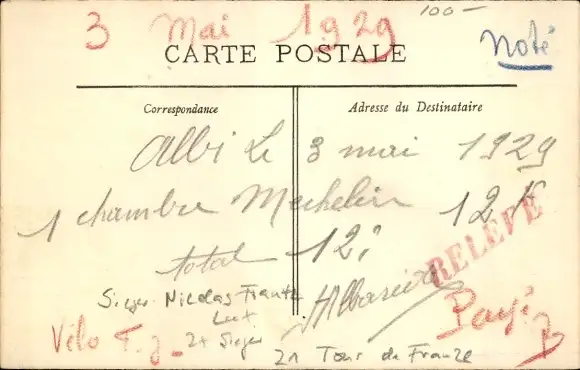 100-
3 Mai 1929
Noté
CARTE POSTALE
Correspondance
Adresse du Destinataire
Albi Le 3 mai 1929
1 chambre Mechelin 12 f
total 12
RELEVÉ
Sieger Nicolas Frantz
Lux
Payé
Vélo T.
2x Sieger
21 Tour de Franze